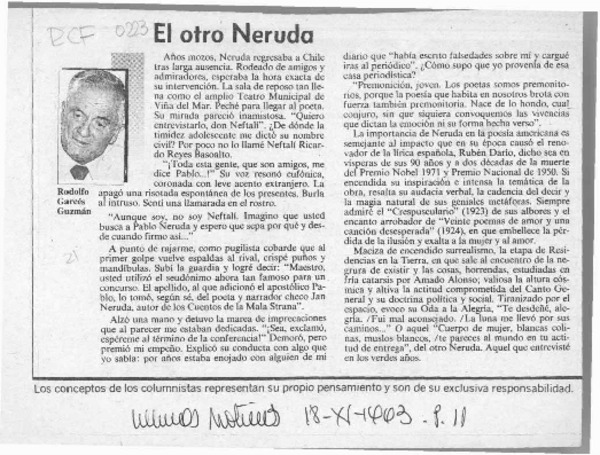 RCF 0223
El otro Neruda
Rodolfo
Garcés
Guzmán
Años mozos, Neruda regresaba a Chile
tras larga ausencia. Rodeado de amigos y
admiradores, esperaba la hora exacta de
su intervención. La sala de reposo tan lle-
na como el amplio Teatro Municipal de
Viña del Mar. Peché para llegar al poeta.
Su mirada pareció inamistosa. "Quiero
entrevistarlo, don Neftalí". ¿De dónde la
timidez adolescente me dictó su nombre
civil? Por poco no lo llamé Neftalí Ricar-
do Reyes Basoalto.
"¡Toda esta gente, que son amigos, me
dice Pablo...!" Su voz resonó cufónica,
coronada con leve acento extranjero. La
apagó una risotada espontánea de los presentes. Burla
al intruso. Sentí una llamarada en el rostro.
"Aunque soy, no soy Neftalí. Imagino que usted
busca a Pablo Neruda y espero que sepa por qué y des-
de cuándo firmo así..."
A punto de rajarme, como pugilista cobarde que al
primer golpe vuelve espaldas al rival, crispé puños y
mandíbulas. Subí la guardia y logré decir: "Maestro,
usted utilizó el seudónimo ahora tan famoso para un
concurso. El apellido, al que adicionó el apostólico Pa-
blo, lo tomó, según sé, del poeta y narrador checo Jan
Neruda, autor de los Cuentos de la Mala Strana".
Alzó una mano y detuvo la marea de imprecaciones
que al parecer me estaban dedicadas. "¡Sea, exclamó,
espéreme al término de la conferencia!" Demoró, pero
premió mi empeño. Explicó su conducta con algo que
yo sabía: por años estaba enojado con alguien de mi
diario que "había escrito falsedades sobre mí y cargué
iras al periódico". ¿Cómo supo que yo provenía de esa
casa periodística?
"Premonición, joven. Los poetas somos premonito-
rios, porque la poesía que habita en nosotros brota con
fuerza también premonitoria. Nace de lo hondo, cual
conjuro, sin que siquiera convoquemos las vivencias
que dictan la emoción ni su forma hecha verso".
La importancia de Neruda en la poesía americana es
semejante al impacto que en su época causó el reno-
vador de la lírica española, Rubén Darío, dicho sea en
vísperas de sus 90 años y a dos décadas de la muerte
del Premio Nobel 1971 y Premio Nacional de 1950. Si
encendida su inspiración e intensa la temática de la
obra, resalta su audacia verbal, la cadencia del decir y
la magia natural de sus geniales metáforas. Siempre
admiré el "Crepusculario" (1923) de sus albores y el
encanto arrobador de "Veinte poemas de amor y una
canción desesperada" (1924), en que embellece la pér-
dida de la ilusión y exalta a la mujer y al amor.
Maciza de encendido surrealismo, la etapa de Resi-
dencias en la Tierra, en que sale al encuentro de la ne-
grura de existir y las cosas, horrendas, estudiadas en
fría catarsis por Amado Alonso; valiosa la altura cós-
mica y altiva la actitud comprometida del Canto Gene-
ral y su doctrina política y social. Tiranizado por el
espacio, evoco su Oda a la Alegría, "Te desdeñé, ale-
gría. /Fui mal aconsejado. /La luna me llevó por sus
caminos..." O aquel "Cuerpo de mujer, blancas coli-
nas, muslos blancos, /te pareces al mundo en tu acti-
tud de entrega", del otro Neruda. Aquel que entrevisté
en los verdes años.
Los conceptos de los columnistas representan su propio pensamiento y son de su exclusiva responsabilidad.
Últimas Noticias 18-XI-1993 P. 11